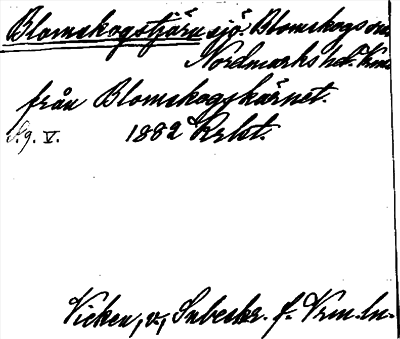 Blomskogstjärn sjö. Blomskogs sn.
Nordmarks hd. Vrm.
från Blomskogskärnet.
S.g. V. 1882 Krlst.
Vicken, v., Snbeskr. f. Vrm. ln.